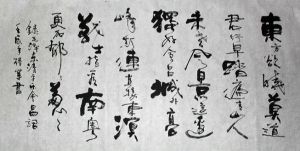 東方欲曉莫道
君行早踏遍青山人
未老風景這邊
獨好會昌城外高
峰顛連直接東溟
战士指看南粤
更加郁々葱々
錄毛澤東清平樂會昌